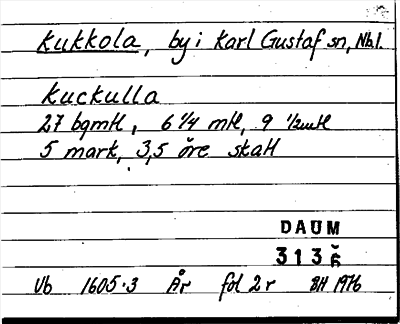 Kukkola, by i Karl Gustaf sn, Nb.l.
Kuckulla
27 bqmtl, 6 1/4 mtl, 9 1/2mtl
5 mark, 3,5 öre skatt
DAUM
3136
Vb 1605:3 År fol 2r BH 1976